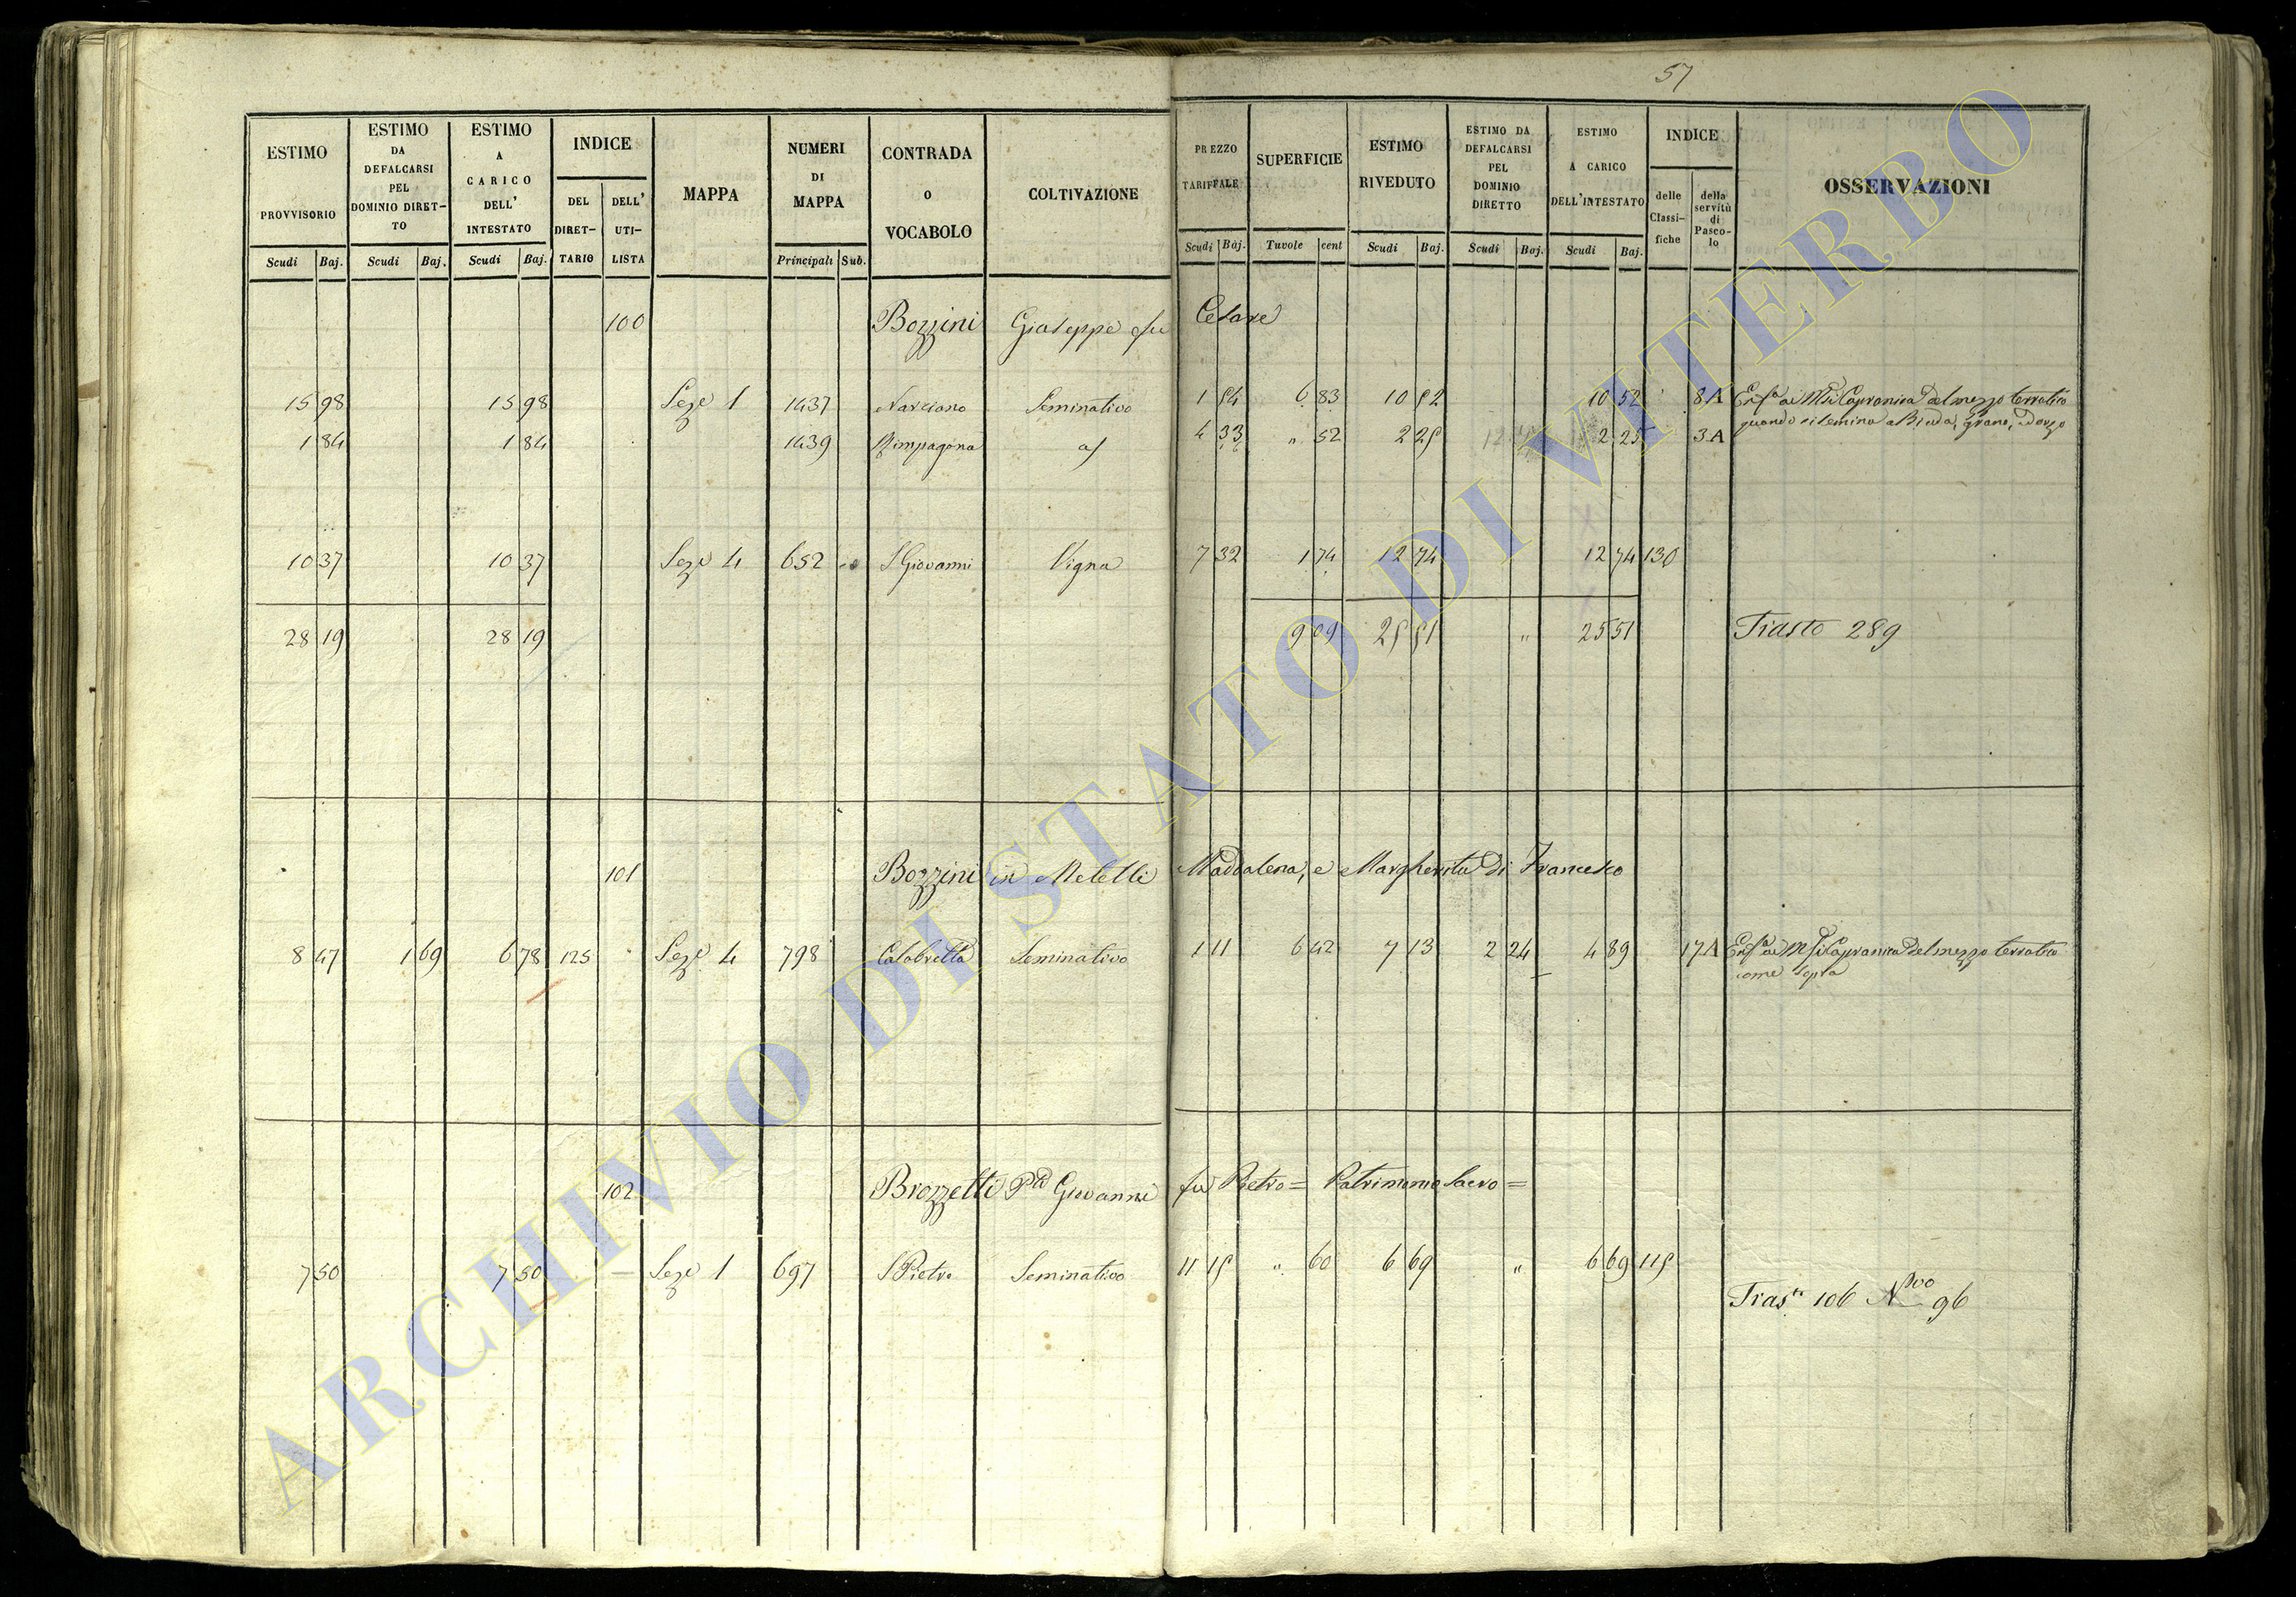 57
ESTIMO PROVVISORIO Scudi Baj.
ESTIMO DA DEFALCARSI PEL DOMINIO DIRET-TO Scudi Baj.
ESTIMO A CARICO DELL' INTESTATO Scudi Baj.
INDICE DEL DIRET-TARIO DELL' UTI-LISTA
MAPPA
NUMERI DI MAPPA Principali Sub.
CONTRADA O VOCABOLO
COLTIVAZIONE
PREZZO TARIFFALE Scudi Baj.
SUPERFICIE Tuvole cent
ESTIMO RIVEDUTO Scudi Baj.
ESTIMO DA DEFALCARSI PEL DOMINIO DIRETTO Scudi Baj.
ESTIMO A CARICO DELL'INTESTATO Scudi Baj.
INDICE delle Classi-fiche della servitù di Pasco-lo
OSSERVAZIONI
100 Bozzini Giuseppe fu Cesare
15 98 15 98 Seze 1 1437 Narciano Seminativo 1 54 6 83 10 52 10 52 8A Capranica del mezzo terratico
quando si semina a Biada, grano, ed orzo
1 84 1 84 1439 Rimpagona as 4 33 " 52 2 25 2 25 3A
10 37 10 37 Seze 4 652 S Giovanni Vigna 7 32 1 74 12 74 12 74 130
28 19 28 19 9 09 25 51 " 25 51 Trasto 289
101 Bozzini in Metelli Maddalena, e Margherita di Francesco
8 47 1 69 6 78 125 Seze 4 798 Calabretta Seminativo 1 11 6 42 7 13 2 24 4 89 17A Capranica del mezzo terratico
come sopra
102 Brozzetti Pld Giovanni fu Pietro = Patrimonio Sacro =
7 50 7 50 Seze 1 697 S Pietro Seminativo 11 15 " 60 6 69 " 6 69 115
Tras.to 106 Nvo 96
ARCHIVIO DI STATO DI VITERBO